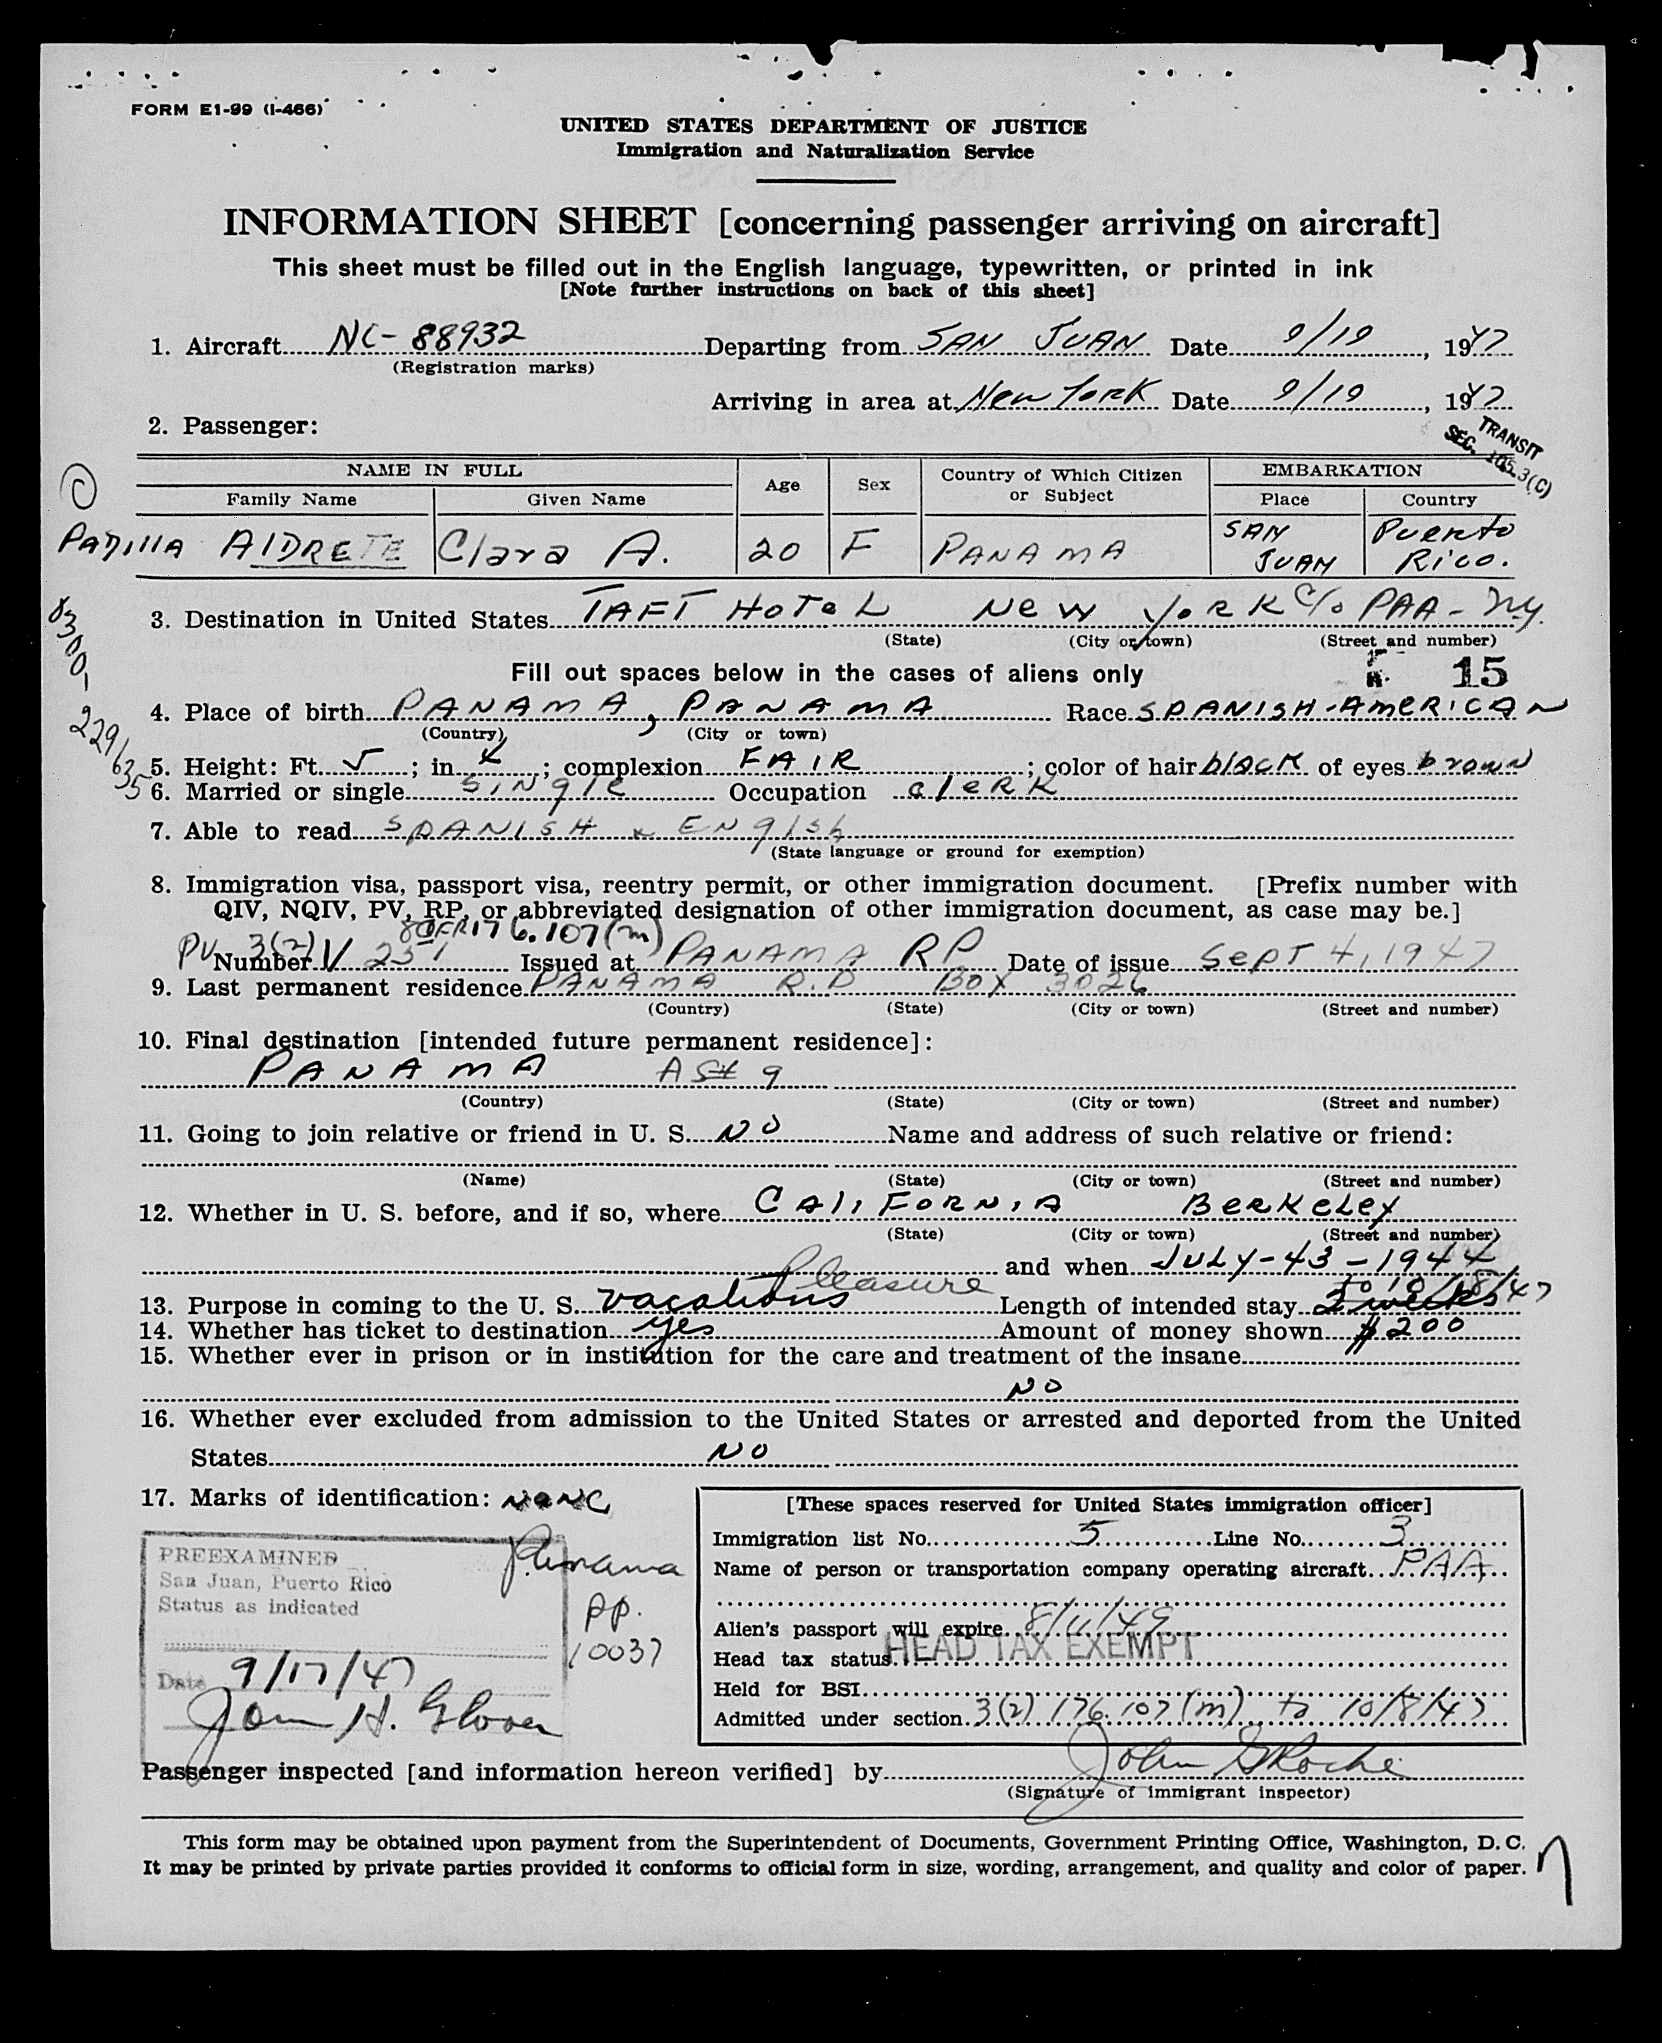 FORM E1-99 (I-466)
UNITED STATES DEPARTMENT OF JUSTICE
Immigration and Naturalization Service
INFORMATION SHEET [concerning passenger arriving on aircraft]
This sheet must be filled out in the English language, typewritten, or printed in ink
[Note further instructions on back of this sheet]
1. Aircraft NC-88932 Departing from SAN JUAN Date 9/19, 1947
(Registration marks)
Arriving in area at New York Date 9/19, 1947
2. Passenger:
TRANSIT
SEC. 105.3(C)
NAME IN FULL Age Sex Country of Which Citizen or Subject EMBARKATION
Family Name Given Name Place Country
C
PADILLA AlDRETE Clara A. 20 F PANAMA SAN JUAN Puerto Rico.
3. Destination in United States TAFT HOTEL New York C/o PAA - NY.
(State) (City or town) (Street and number)
0300-229635
Fill out spaces below in the cases of aliens only 15
4. Place of birth PANAMA, PANAMA Race SPANISH-AMERICAN
(Country) (City or town)
5. Height: Ft. 5; in. ; complexion FAIR; color of hair black of eyes brown
6. Married or single single Occupation clerk
7. Able to read SPANISH & ENglish
(State language or ground for exemption)
8. Immigration visa, passport visa, reentry permit, or other immigration document. [Prefix number with
QIV, NQIV, PV, RP, or abbreviated designation of other immigration document, as case may be.]
8CFR176.107(m)
PV 3(2) Number V 251 Issued at PANAMA RP Date of issue Sept 4, 1947
9. Last permanent residence PANAMA R.P Box 3026
(Country) (State) (City or town) (Street and number)
10. Final destination [intended future permanent residence]:
PANAMA AS# 9
(Country) (State) (City or town) (Street and number)
11. Going to join relative or friend in U. S. NO Name and address of such relative or friend:
(Name) (State) (City or town) (Street and number)
12. Whether in U. S. before, and if so, where CALIFORNIA BERKELEY
(State) (City or town) (Street and number)
and when JULY-43-1944
Pleasure to 10/8/47
13. Purpose in coming to the U. S. vacations Length of intended stay 2 weeks
14. Whether has ticket to destination yes Amount of money shown $200
15. Whether ever in prison or in institution for the care and treatment of the insane
NO
16. Whether ever excluded from admission to the United States or arrested and deported from the United
States NO
17. Marks of identification: NONE
PREEXAMINED
San Juan, Puerto Rico
Status as indicated
Date 9/17/47
John H. Glover
Panama
PP.
10037
[These spaces reserved for United States immigration officer]
Immigration list No. 5 Line No. 3
Name of person or transportation company operating aircraft PAA
Alien's passport will expire 8/11/49
Head tax status HEAD TAX EXEMPT
Held for BSI
Admitted under section 3(2) 176.107(m) to 10/8/47
Passenger inspected [and information hereon verified] by John Roche
(Signature of immigrant inspector)
This form may be obtained upon payment from the Superintendent of Documents, Government Printing Office, Washington, D. C.
It may be printed by private parties provided it conforms to official form in size, wording, arrangement, and quality and color of paper.